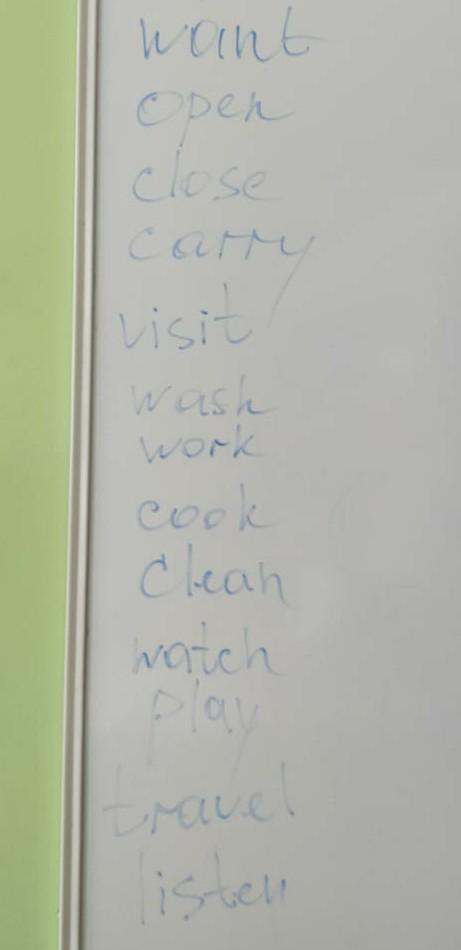 want
open
close
carry
visit
wash
work
cook
clean
watch
play
travel
listen